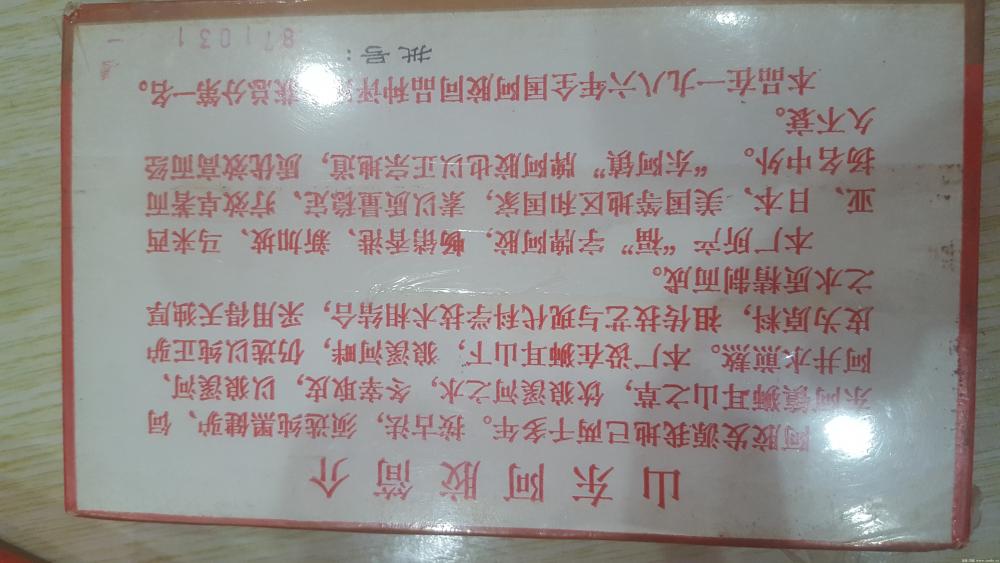 山东阿胶简介
阿胶发源我地已两千多年。按古法，须选纯黑健驴，饲
东阿镇狮耳山之草，饮狼溪河之水，冬宰取皮，以狼溪河、
阿井水煎熬。本厂设在狮耳山下，狼溪河畔，仍选以纯正驴
皮为原料，祖传技艺与现代科学技术相结合，采用得天独厚
之水质精制而成。
本厂所产“福”字牌阿胶，畅销香港、新加坡、马来西
亚、日本、美国等地区和国家，素以质量稳定、疗效卓著而
扬名中外。“东阿镇”牌阿胶也以正宗地道，质优效高而经
久不衰。
本品在一九八六年全国阿胶同品种评 获总分第一名。
批号：871031